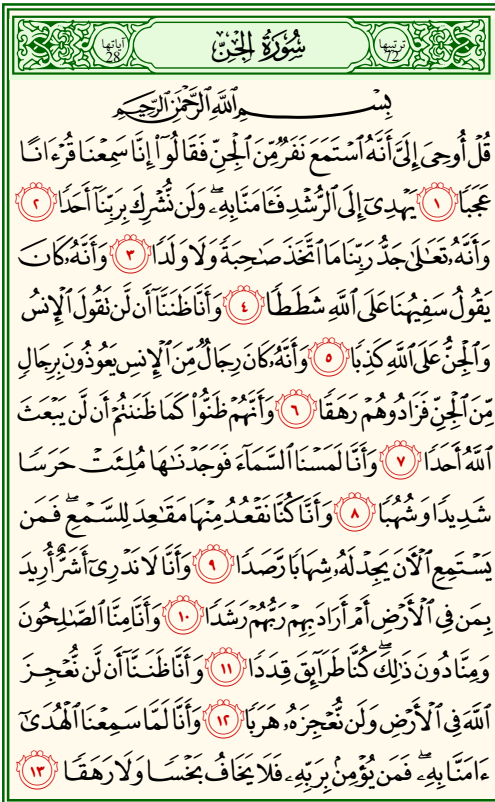 ترتيبها 72 سُورَةُ الجِنّ آياتها 28
بِسْمِ ٱللَّهِ ٱلرَّحْمَٰنِ ٱلرَّحِيمِ
قُلْ أُوحِىَ إِلَىَّ أَنَّهُ ٱسْتَمَعَ نَفَرٌ مِّنَ ٱلْجِنِّ فَقَالُوٓا۟ إِنَّا سَمِعْنَا قُرْءَانًا
عَجَبًا ١ يَهْدِىٓ إِلَى ٱلرُّشْدِ فَـَٔامَنَّا بِهِۦ ۖ وَلَن نُّشْرِكَ بِرَبِّنَآ أَحَدًا ٢
وَأَنَّهُۥ تَعَٰلَىٰ جَدُّ رَبِّنَا مَا ٱتَّخَذَ صَٰحِبَةً وَلَا وَلَدًا ٣ وَأَنَّهُۥ كَانَ
يَقُولُ سَفِيهُنَا عَلَى ٱللَّهِ شَطَطًا ٤ وَأَنَّا ظَنَنَّآ أَن لَّن تَقُولَ ٱلْإِنسُ
وَٱلْجِنُّ عَلَى ٱللَّهِ كَذِبًا ٥ وَأَنَّهُۥ كَانَ رِجَالٌ مِّنَ ٱلْإِنسِ يَعُوذُونَ بِرِجَالٍ
مِّنَ ٱلْجِنِّ فَزَادُوهُمْ رَهَقًا ٦ وَأَنَّهُمْ ظَنُّوا۟ كَمَا ظَنَنتُمْ أَن لَّن يَبْعَثَ
ٱللَّهُ أَحَدًا ٧ وَأَنَّا لَمَسْنَا ٱلسَّمَآءَ فَوَجَدْنَٰهَا مُلِئَتْ حَرَسًا
شَدِيدًا وَشُهُبًا ٨ وَأَنَّا كُنَّا نَقْعُدُ مِنْهَا مَقَٰعِدَ لِلسَّمْعِ ۖ فَمَن
يَسْتَمِعِ ٱلْـَٔانَ يَجِدْ لَهُۥ شِهَابًا رَّصَدًا ٩ وَأَنَّا لَا نَدْرِىٓ أَشَرٌّ أُرِيدَ
بِمَن فِى ٱلْأَرْضِ أَمْ أَرَادَ بِهِمْ رَبُّهُمْ رَشَدًا ١٠ وَأَنَّا مِنَّا ٱلصَّٰلِحُونَ
وَمِنَّا دُونَ ذَٰلِكَ ۖ كُنَّا طَرَآئِقَ قِدَدًا ١١ وَأَنَّا ظَنَنَّآ أَن لَّن نُّعْجِزَ
ٱللَّهَ فِى ٱلْأَرْضِ وَلَن نُّعْجِزَهُۥ هَرَبًا ١٢ وَأَنَّا لَمَّا سَمِعْنَا ٱلْهُدَىٰٓ
ءَامَنَّا بِهِۦ ۖ فَمَن يُؤْمِنۢ بِرَبِّهِۦ فَلَا يَخَافُ بَخْسًا وَلَا رَهَقًا ١٣